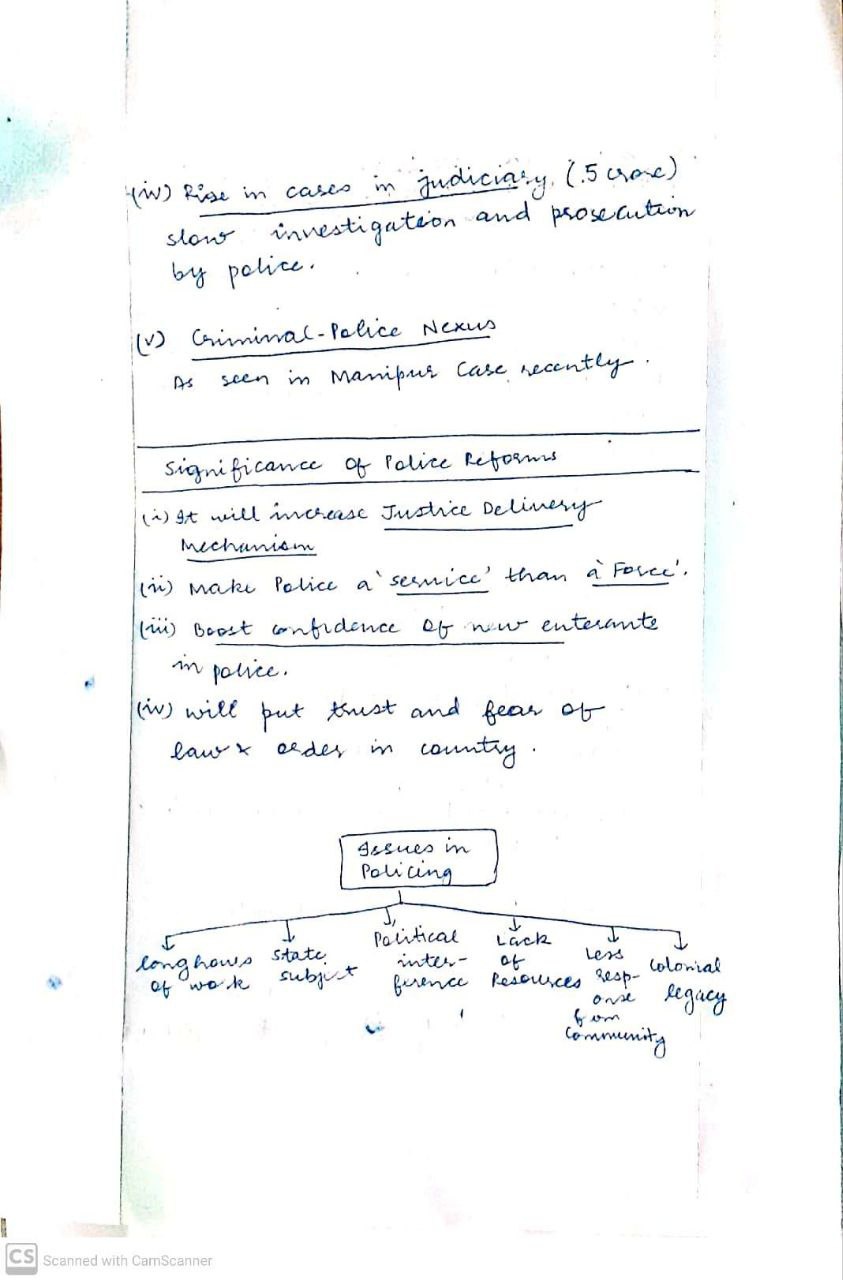 (iv) Rise in cases in judiciary. (.5 crore)
slow investigation and prosecution
by police.
(v) Criminal-Police Nexus
As seen in Manipur Case recently.
Significance of Police Reforms
(i) It will increase Justice Delivery
Mechanism
(ii) Make Police a 'service' than a 'Force'.
(iii) Boost confidence of new enterants
in police.
(iv) will put trust and fear of
law & order in country.
Issues in
Policing
long hours
of work
state
subject
Political
inter-
ference
Lack
of
Resources
Less
resp-
onse
from
Community
Colonial
legacy
CS Scanned with CamScanner